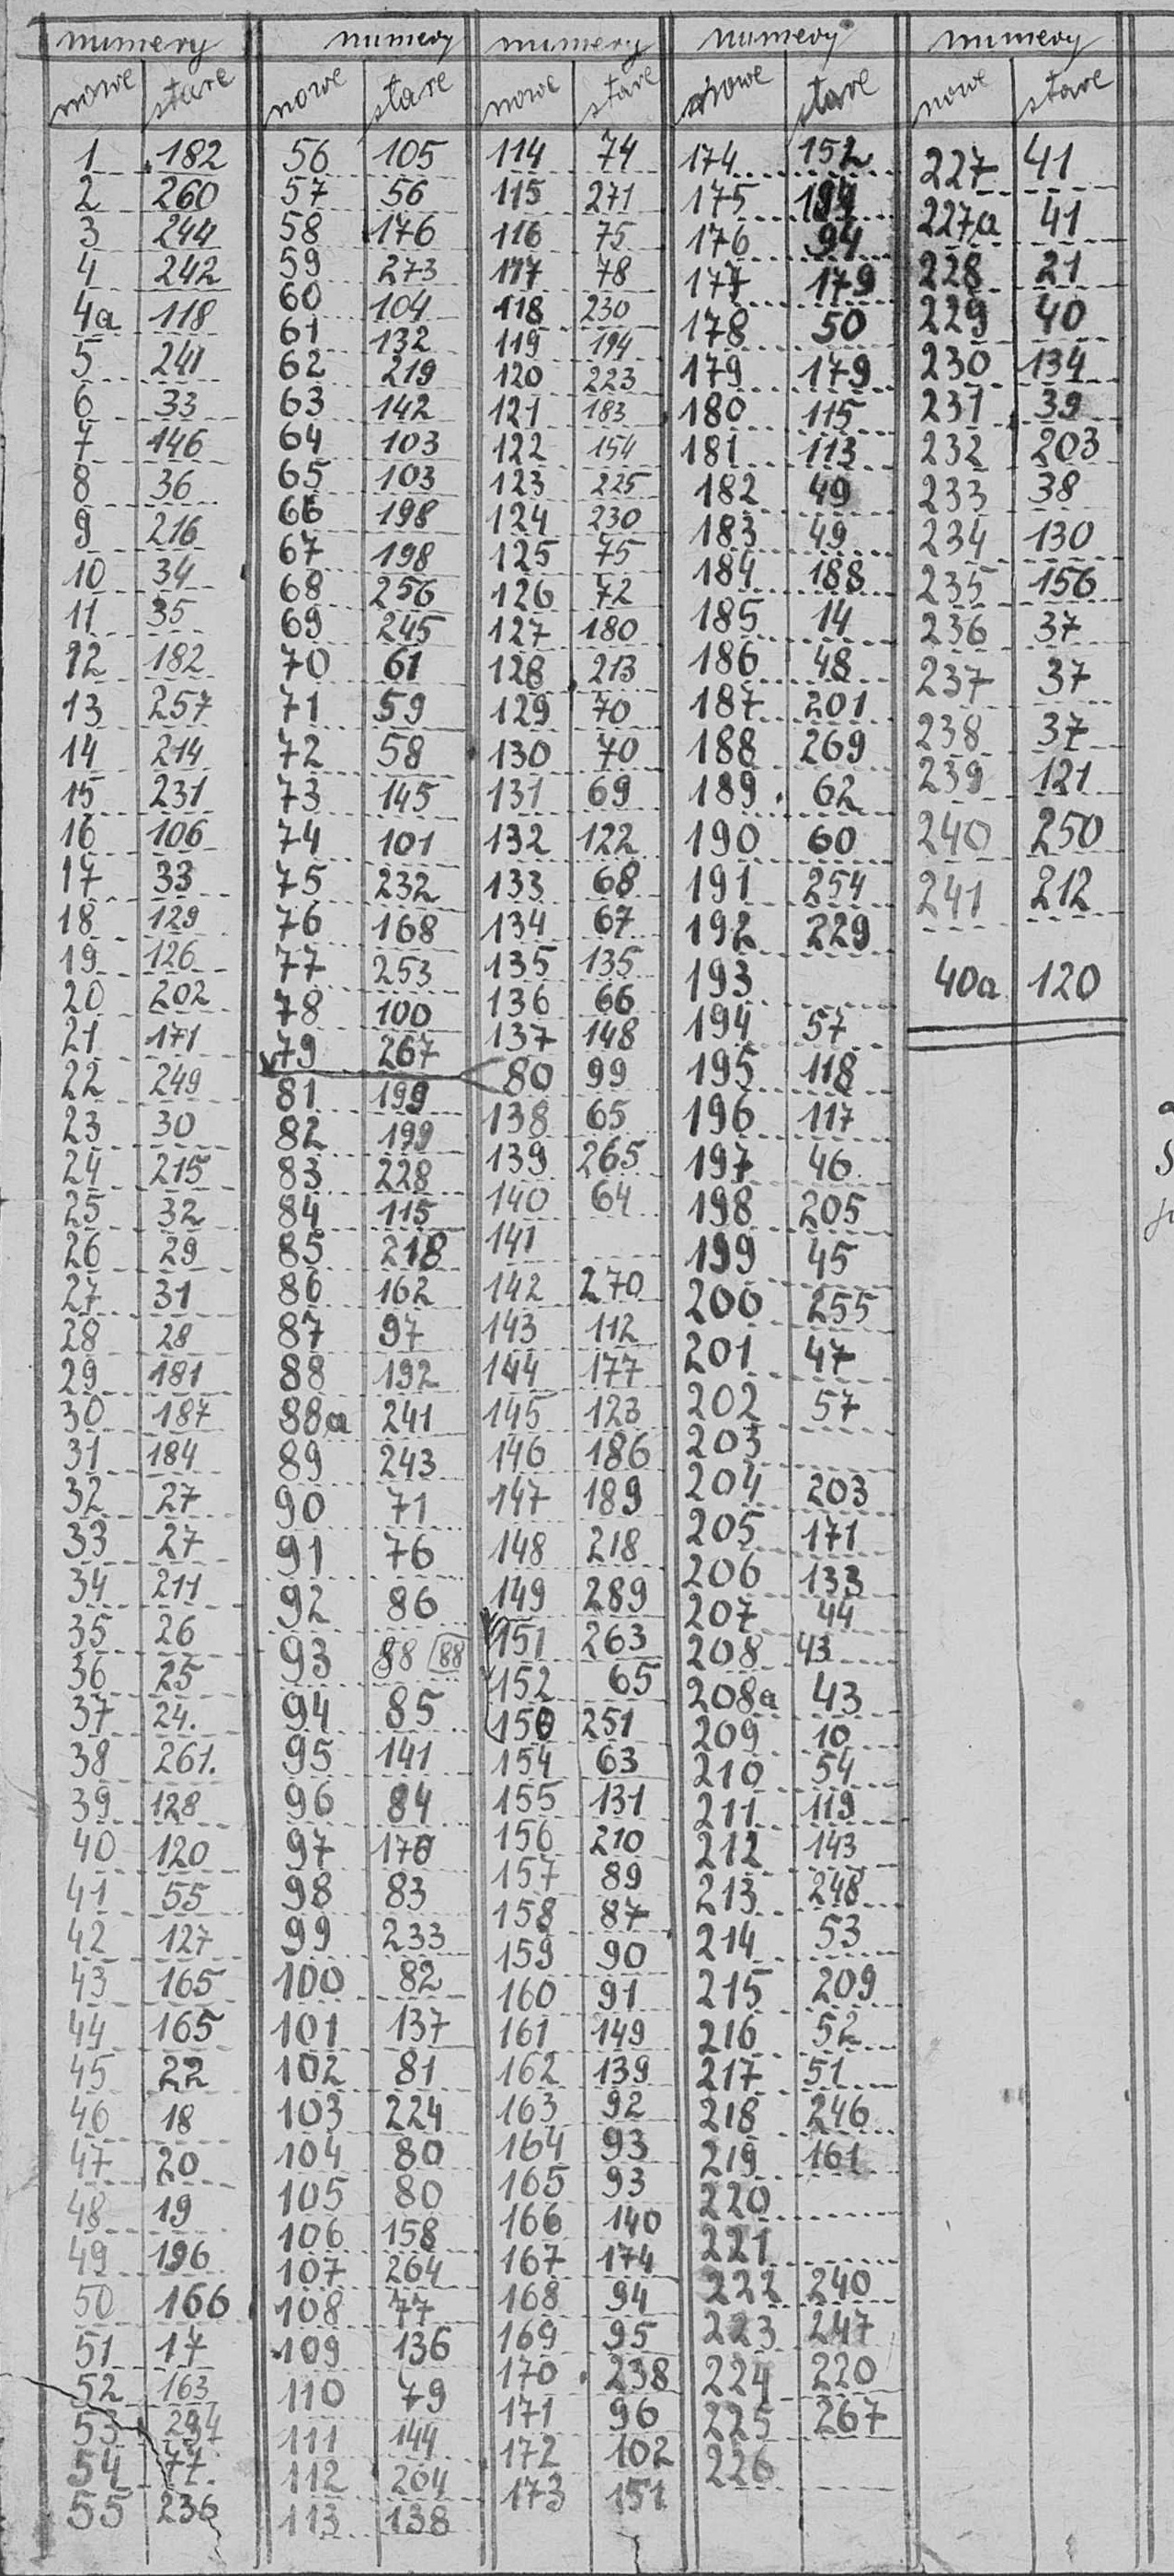 numery
nowe stare
1 182
2 260
3 244
4 242
4a 118
5 241
6 33
7 146
8 36
9 216
10 34
11 35
12 182
13 257
14 214
15 231
16 106
17 33
18 129
19 126
20 202
21 171
22 249
23 30
24 215
25 32
26 29
27 31
28 28
29 181
30 187
31 184
32 27
33 27
34 211
35 26
36 25
37 24.
38 261.
39 128
40 120
41 55
42 127
43 165
44 165
45 22
46 18
47 20
48 19
49 196
50 166
51 17
52 163
53
54 77.
55 236
numery
nowe stare
56 105
57 56
58 176
59 273
60 104
61 132
62 219
63 142
64 103
65 103
66 198
67 198
68 256
69 245
70 61
71 59
72 58
73 145
74 101
75 232
76 168
77 253
78 100
79 267
81 199
82 199
83 228
84 115
85 218
86 162
87 97
88 192
88a 241
89 243
90 71
91 76
92 86
93 88 88
94 85
95 141
96 84
97 170
98 83
99 233
100 82
101 137
102 81
103 224
104 80
105 80
106 158
107 264
108 77
109 136
110 79
111 144
112 204
113 138
numery
nowe stare
114 74
115 271
116 75
117 78
118 230
119 194
120 223
121 183
122 154
123 225
124 230
125 75
126 72
127 180
128 213
129 70
130 70
131 69
132 122
133 68
134 67
135 135
136 66
137 148
80 99
138 65
139 265
140 64
141
142 270
143 112
144 177
145 123
146 186
147 189
148 218
149 289
151 263
152 65
150 251
154 63
155 131
156 210
157 89
158 87
159 90
160 91
161 149
162 139
163 92
164 93
165 93
166 140
167 174
168 94
169 95
170 238
171 96
172 102
173 151
numery
nowe stare
174 152
175
176 94
177 179
178 50
179 179
180 115
181 113
182 49
183 49
184 188
185 14
186 48
187 201
188 269
189 62
190 60
191 254
192 229
193
194 57
195 118
196 117
197 46
198 205
199 45
200 255
201 47
202 57
203
204 203
205 171
206 133
207 44
208 43
208a 43
209 10
210 54
211 119
212 143
213 248
214 53
215 209
216 52
217 51
218 246
219 161
220
221
222 240
223 247
224 220
225 267
226
numery
nowe stare
227 41
227a 41
228 21
229 40
230 134
231 39
232 203
233 38
234 130
235 156
236 37
237 37
238 37
239 121
240 250
241 212
40a 120